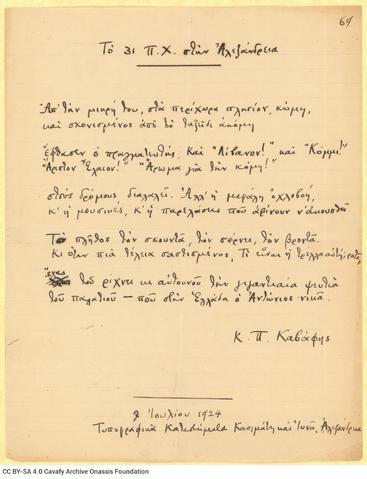 69
Το 31 Π.Χ. στην Αλεξάνδρεια
Απ' την μικρή του, στα περίχωρα πλησίον, κώμη,
και σκονισμένος από το ταξείδι ακόμη
έφθασεν ο πραγματευτής. Και "Λίβανον!" και "Κόμμι!"
"Άριστον Έλαιον!" "Άρωμα για την κόμη!"
στους δρόμους διαλαλεί. Αλλ' η μεγάλη οχλοβοή,
κ' η μουσικές, κ' η παρελάσεις πού αφίνουν ν' ακουσθεί.
Το πλήθος τον σκουντά, τον σέρνει, τον βροντά.
Κι όταν πια τέλεια σαστισμένος, Τι είναι η τρέλλα αυτή; ρωτά,
ένας του ρίχνει κι αυτουνού την γιγαντιαία ψευτιά
του παλατιού — που στην Ελλάδα ο Αντώνιος νικά.
Κ. Π. Καβάφης
9 Ιουλίου 1924
Τυπογραφικά Καταστήματα Κασιμάτη και Ιωνά, Αλεξάνδρεια
CC BY-SA 4.0 Cavafy Archive Onassis Foundation